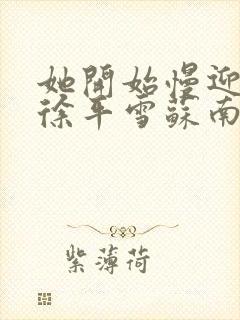 她開始慢迎
徐平雪蘇南
紫薄荷